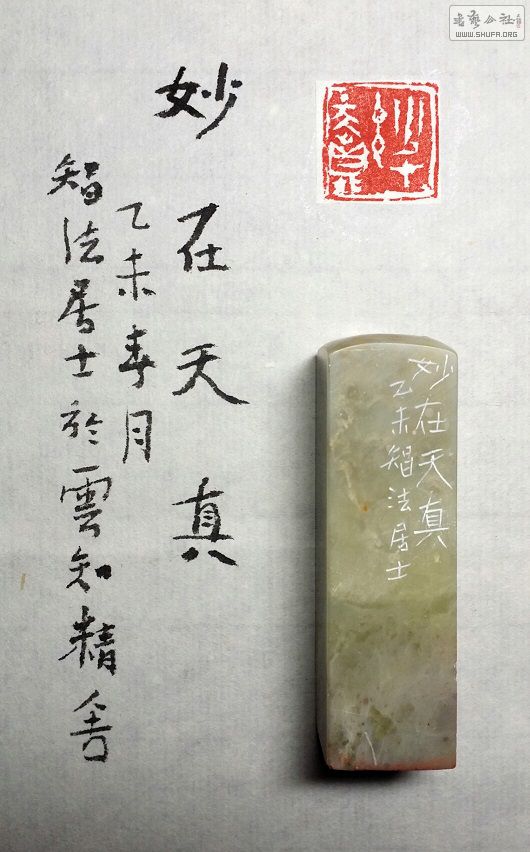 妙在天真
乙未春月
智法居士於雲知精舍
妙在天真
乙未智法居士
書藝公社
WWW.SHUFA.ORG